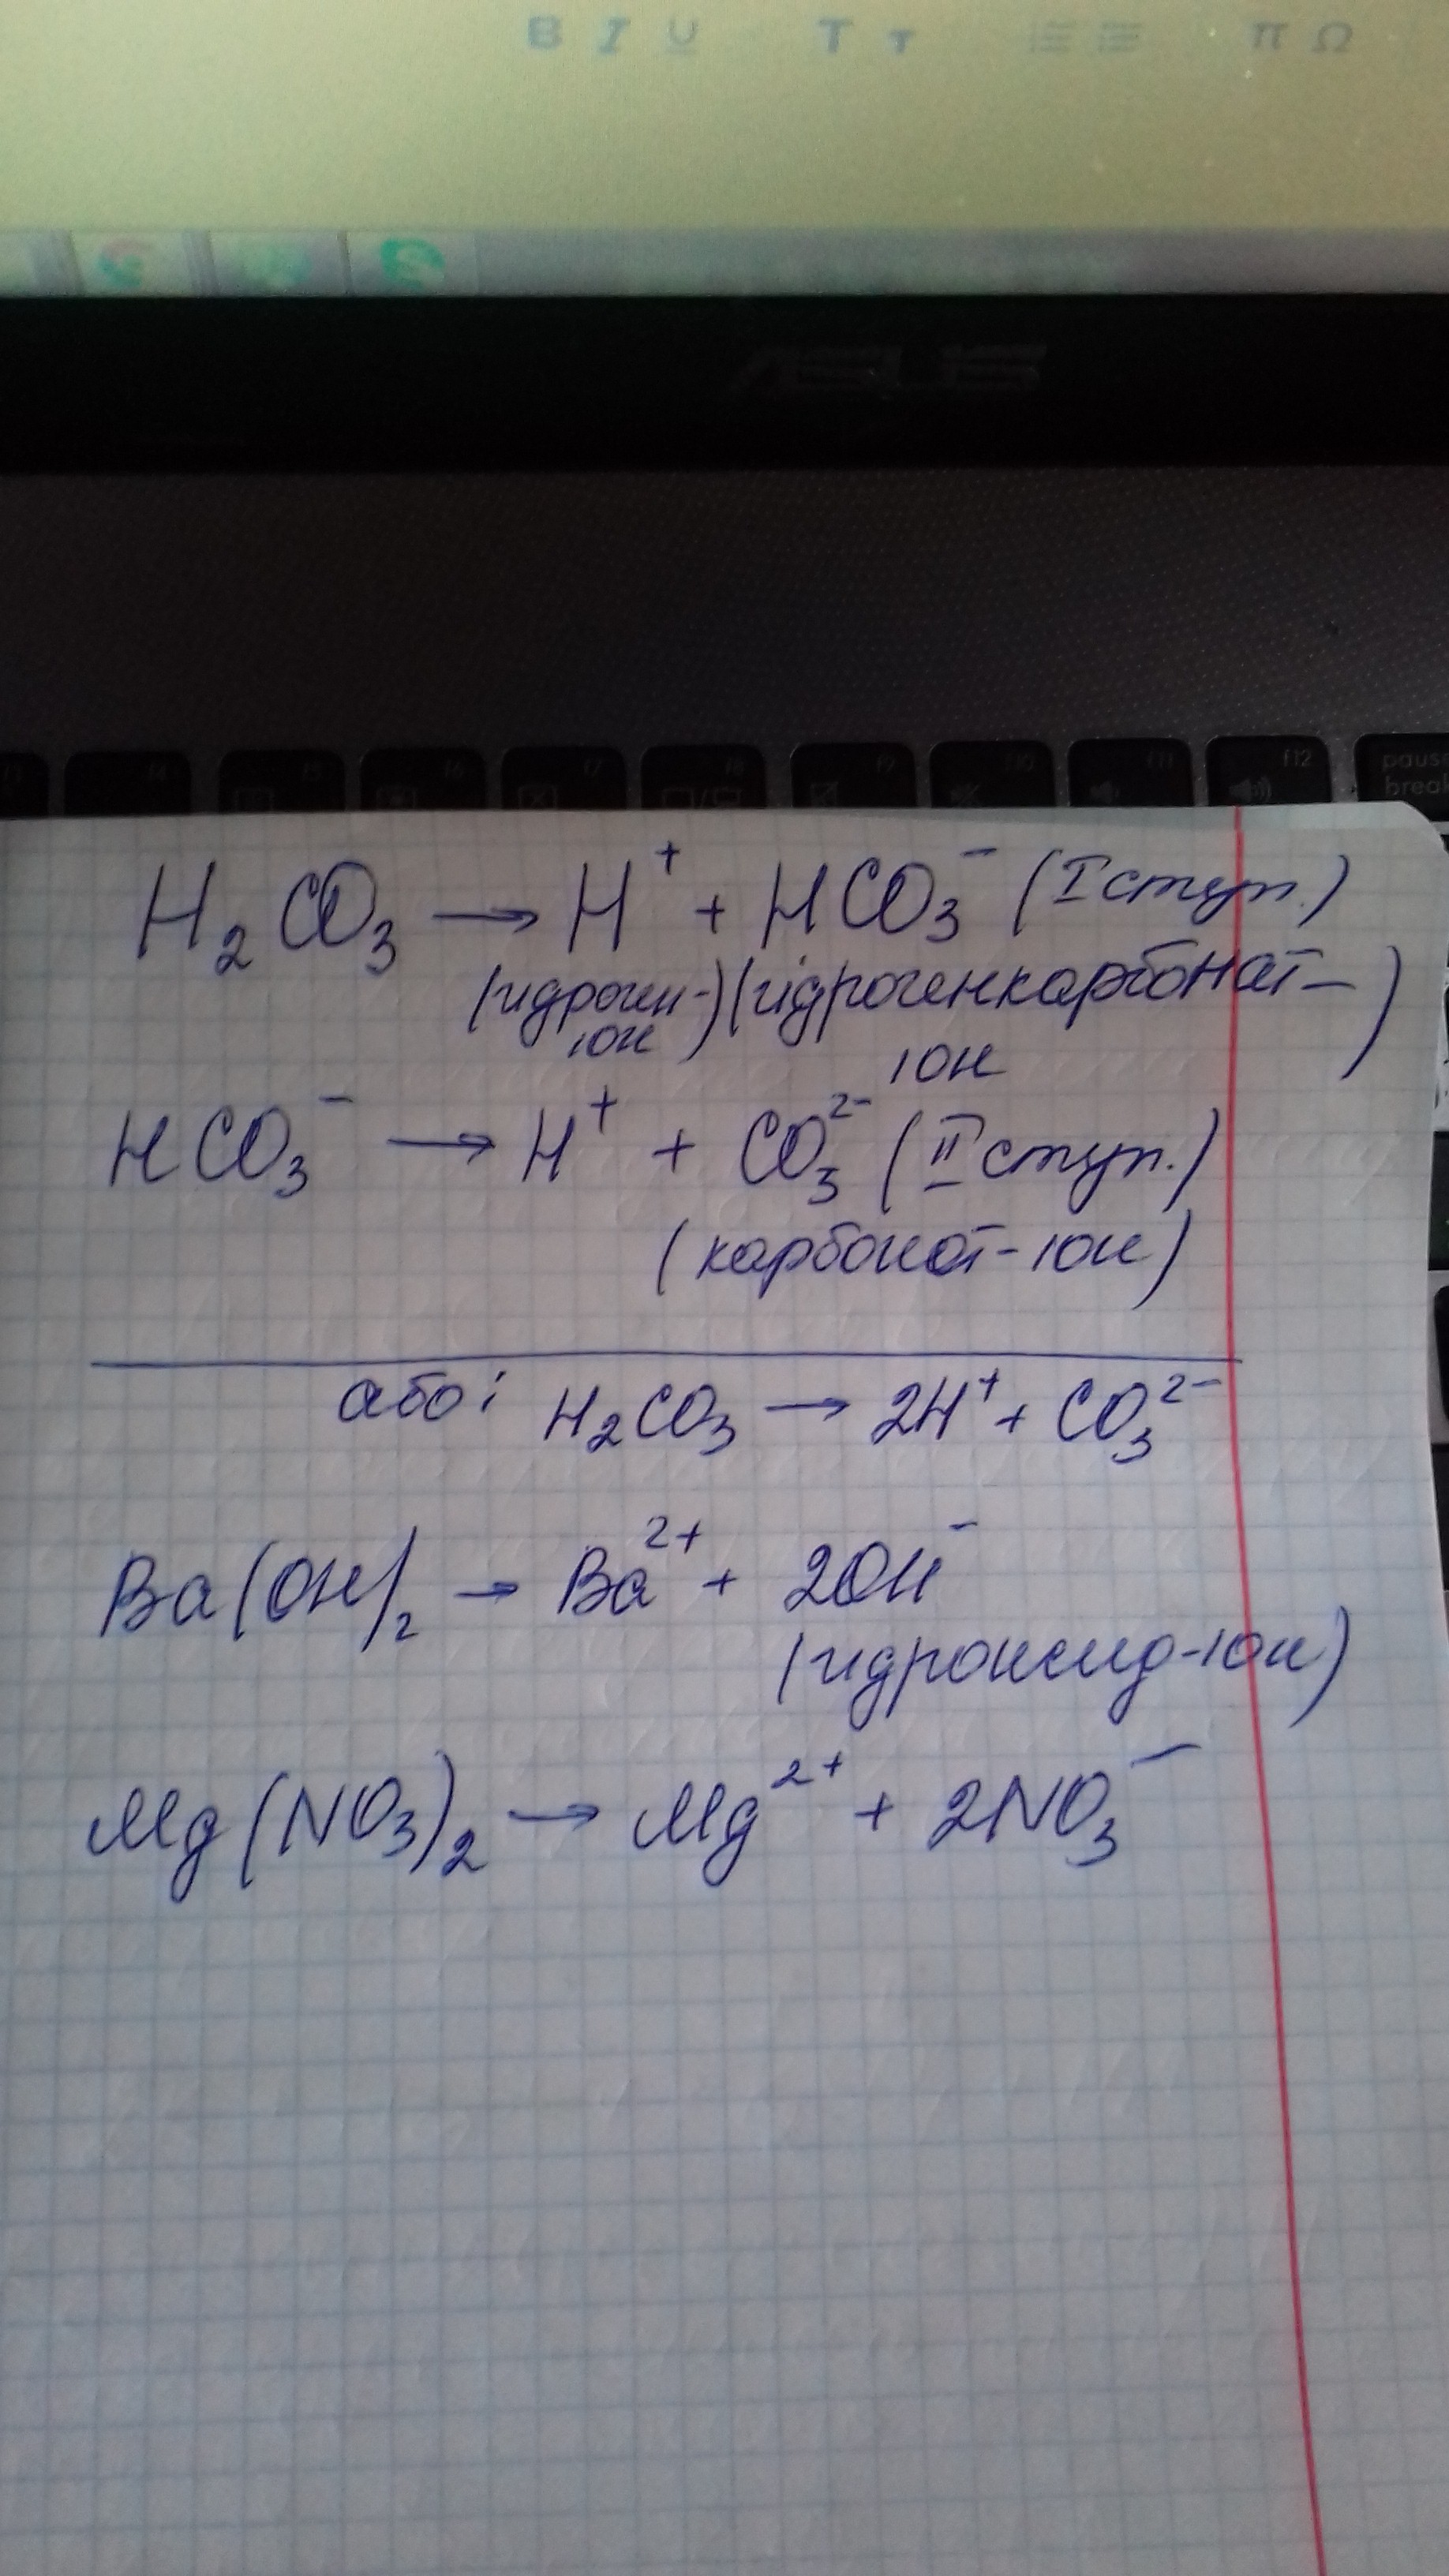 B I U T т π Ω
ASUS
f4 f5 f6 f7 f8 f9 f10 f11 f12 pause
break
H₂CO₃ → H⁺ + HCO₃⁻ (I ступ.)
(гідроген-) (гідрогенкарбонат-)
іон
іон
HCO₃⁻ → H⁺ + CO₃²⁻ (II ступ.)
(карбонат-іон)
або: H₂CO₃ → 2H⁺ + CO₃²⁻
Ba(OH)₂ → Ba²⁺ + 2OH⁻
(гідроксид-іон)
Mg(NO₃)₂ → Mg²⁺ + 2NO₃⁻